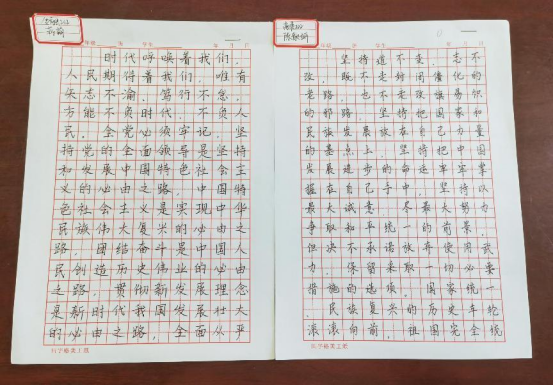 时代呼唤着我们,
人民期待着我们,唯有
矢志不渝、笃行不怠,
方能不负时代、不负人
民。全党必须牢记,坚
持党的全面领导是坚持
和发展中国特色社会主
义的必由之路,中国特
色社会主义是实现中华
民族伟大复兴的必由之
路,团结奋斗是中国人
民创造历史伟业的必由
之路,贯彻新发展理念
是新时代我国发展壮大
的必由之路,全面从严
年 月 日
坚持道不变、志不
改,既不走封闭僵化的
老路,也不走改旗易帜
的邪路,坚持把国家和
民族发展放在自己力量
的基点上,坚持把中国
发展进步的命运牢牢掌
握在自己手中。坚持以
最大诚意、尽最大努力
争取和平统一的前景,
但决不承诺放弃使用武
力,保留采取一切必要
措施的选项。国家统一
、民族复兴的历史车轮
滚滚向前,祖国完全统